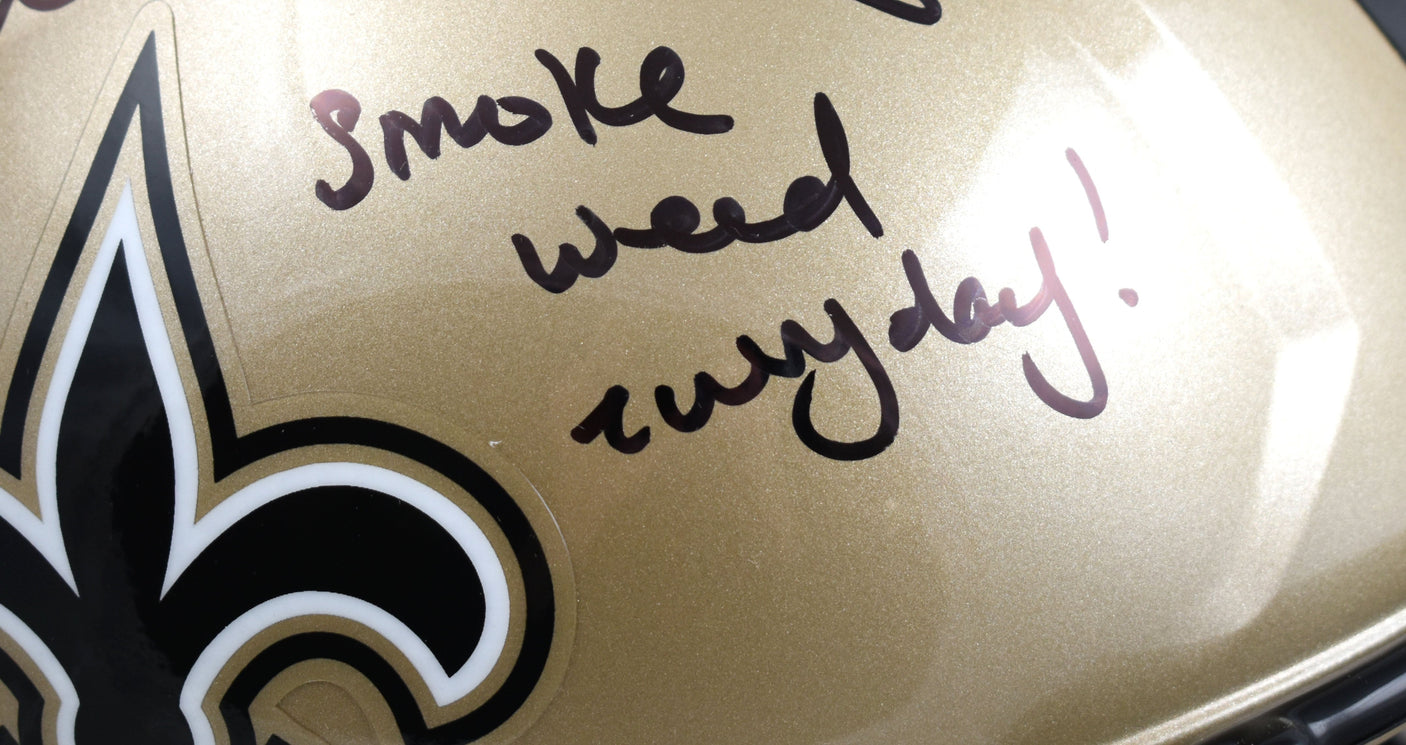 Smoke
weed
everyday!